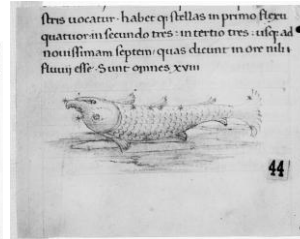 stris uocatur · habet q; stellas in primo flexu
quatuor in secundo tres : in tertio tres : usq; ad
nouissimam septem / quas dicunt in ore nili
fluuij esse · Sunt omnes xviii
44